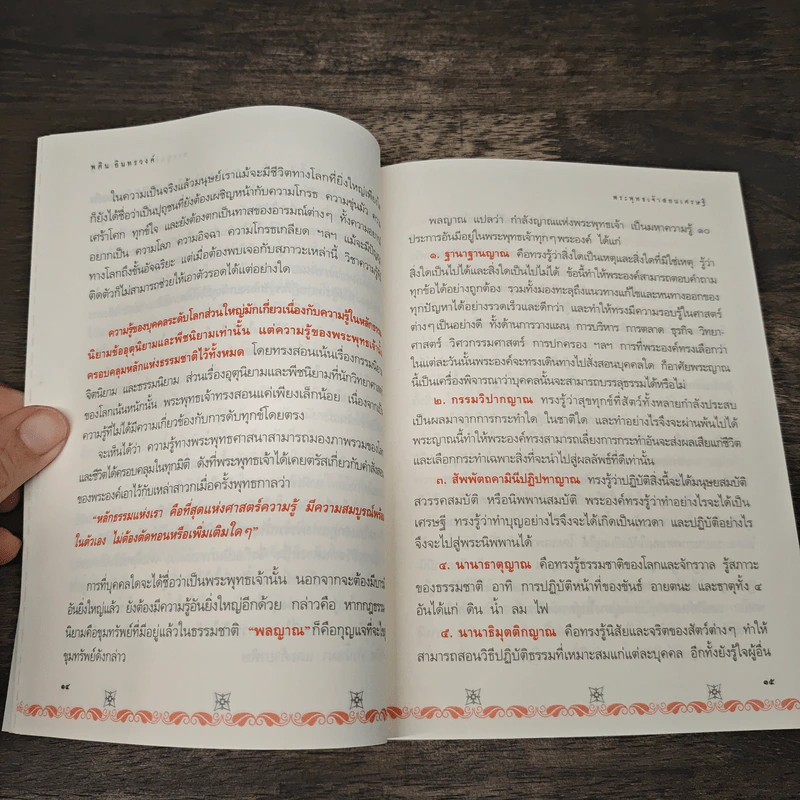 พศิน อินทรวงค์
ในความเป็นจริงแล้วมนุษย์เราแม้จะมีชีวิตทางโลกที่ยิ่งใหญ่เพียงใด
ก็ยังได้ชื่อว่าเป็นปุถุชนที่ยังต้องเผชิญหน้ากับความโกรธ ความขุ่นมัว
เศร้าโศก ทุกข์ใจ และยังต้องตกเป็นทาสของอารมณ์ต่างๆ ทั้งความ
อยากเป็น ความโลภ ความอิจฉา ความโกรธเกลียด ฯลฯ แม้จะมี
ทางโลกถึงขั้นอัจฉริยะ แต่เมื่อต้องพบเจอกับสภาวะเหล่านี้ วิชาความรู้
ติดตัวก็ไม่สามารถช่วยให้เอาตัวรอดได้แต่อย่างใด
ความรู้ของบุคคลระดับโลกส่วนใหญ่มักเกี่ยวเนื่องกับความรู้ในหลัก
นิยามข้ออุตุนิยามและพีชนิยามเท่านั้น แต่ความรู้ของพระพุทธเจ้า
ครอบคลุมหลักแห่งธรรมชาติไว้ทั้งหมด โดยทรงสอนเน้นเรื่องกรรมนิยาม
จิตนิยาม และธรรมนิยาม ส่วนเรื่องอุตุนิยามและพีชนิยามที่นักวิทยาศาสตร์
ของโลกเน้นหนักนั้น พระพุทธเจ้าทรงสอนแค่เพียงเล็กน้อย เนื่องจาก
ความรู้ที่ไม่ได้มีความเกี่ยวข้องกับการดับทุกข์โดยตรง
จะเห็นได้ว่า ความรู้ทางพระพุทธศาสนาสามารถมองภาพรวมของโลก
และชีวิตได้ครอบคลุมในทุกมิติ ดังที่พระพุทธเจ้าได้เคยตรัสเกี่ยวกับคำสั่งสอน
ของพระองค์เอาไว้กับเหล่าสาวกเมื่อครั้งพุทธกาลว่า
“หลักธรรมแห่งเรา คือที่สุดแห่งศาสตร์ความรู้ มีความสมบูรณ์พร้อม
ในตัวเอง ไม่ต้องตัดทอนหรือเพิ่มเติมใดๆ”
การที่บุคคลใดจะได้ชื่อว่าเป็นพระพุทธเจ้านั้น นอกจากจะต้องมี
อันยิ่งใหญ่แล้ว ยังต้องมีความรู้อันยิ่งใหญ่อีกด้วย กล่าวคือ หากกฎธรรม
นิยามคือขุมทรัพย์ที่มีอยู่แล้วในธรรมชาติ “พลญาณ” ก็คือกุญแจที่จะ
ขุมทรัพย์ดังกล่าว
๑๔
พระพุทธเจ้าสอนเศรษฐี
พลญาณ แปลว่า กำลังญาณแห่งพระพุทธเจ้า เป็นมหาความรู้ ๑๐
ประการอันมีอยู่ในพระพุทธเจ้าทุกๆพระองค์ ได้แก่
๑. ฐานาฐานญาณ คือทรงรู้ว่าสิ่งใดเป็นเหตุและสิ่งใดที่มิใช่เหตุ รู้ว่า
สิ่งใดเป็นไปได้และสิ่งใดเป็นไปไม่ได้ ข้อนี้ทำให้พระองค์สามารถตอบคำถาม
ทุกข้อได้อย่างถูกต้อง รวมทั้งมองทะลุถึงแนวทางแก้ไขและหนทางออกของ
ทุกปัญหาได้อย่างรวดเร็วและดีกว่า และทำให้ทรงมีความรอบรู้ในศาสตร์
ต่างๆเป็นอย่างดี ทั้งด้านการวางแผน การบริหาร การตลาด ธุรกิจ วิทยา-
ศาสตร์ วิศวกรรมศาสตร์ การปกครอง ฯลฯ การที่พระองค์ทรงเลือกว่า
ในแต่ละวันนั้นพระองค์จะทรงเดินทางไปสั่งสอนบุคคลใด ก็อาศัยพระญาณ
นี้เป็นเครื่องพิจารณาว่าบุคคลนั้นจะสามารถบรรลุธรรมได้หรือไม่
๒. กรรมวิปากญาณ ทรงรู้ว่าสุขทุกข์ที่สัตว์ทั้งหลายกำลังประสบ
เป็นผลมาจากการกระทำใด ในชาติใด และทำอย่างไรจึงจะผ่านพ้นไปได้
พระญาณนี้ทำให้พระองค์ทรงสามารถเลี่ยงการกระทำอันจะส่งผลเสียแก่ชีวิต
และเลือกกระทำเฉพาะสิ่งที่จะนำไปสู่ผลลัพธ์ที่ดีเท่านั้น
๓. สัพพัตถคามินีปฏิปทาญาณ ทรงรู้ว่าปฏิบัติสิ่งนี้จะได้มนุษยสมบัติ
สวรรคสมบัติ หรือนิพพานสมบัติ พระองค์ทรงรู้ว่าทำอย่างไรจะได้เป็น
เศรษฐี ทรงรู้ว่าทำบุญอย่างไรจึงจะได้เกิดเป็นเทวดา และปฏิบัติอย่างไร
จึงจะไปสู่พระนิพพานได้
๔. นานาธาตุญาณ คือทรงรู้ธรรมชาติของโลกและจักรวาล รู้สภาวะ
ของธรรมชาติ อาทิ การปฏิบัติหน้าที่ของขันธ์ อายตนะ และธาตุทั้ง ๔
อันได้แก่ ดิน น้ำ ลม ไฟ
๕. นานาธิมุตติกญาณ คือทรงรู้นิสัยและจริตของสัตว์ต่างๆ ทำให้
สามารถสอนวิธีปฏิบัติธรรมที่เหมาะสมแก่แต่ละบุคคล อีกทั้งยังรู้ใจผู้อื่น
๑๕